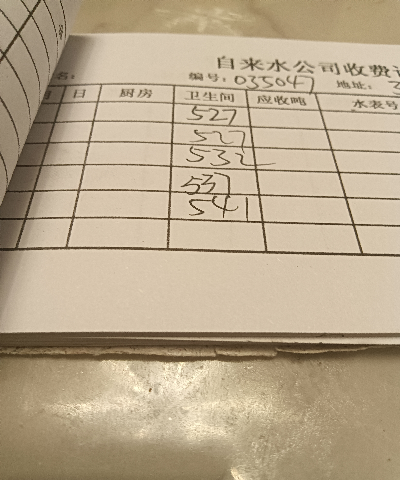 自来水公司收费
名: 编号: 035047 地址:
月 日 厨房 卫生间 应收吨 水表号
527
527
532
537
541